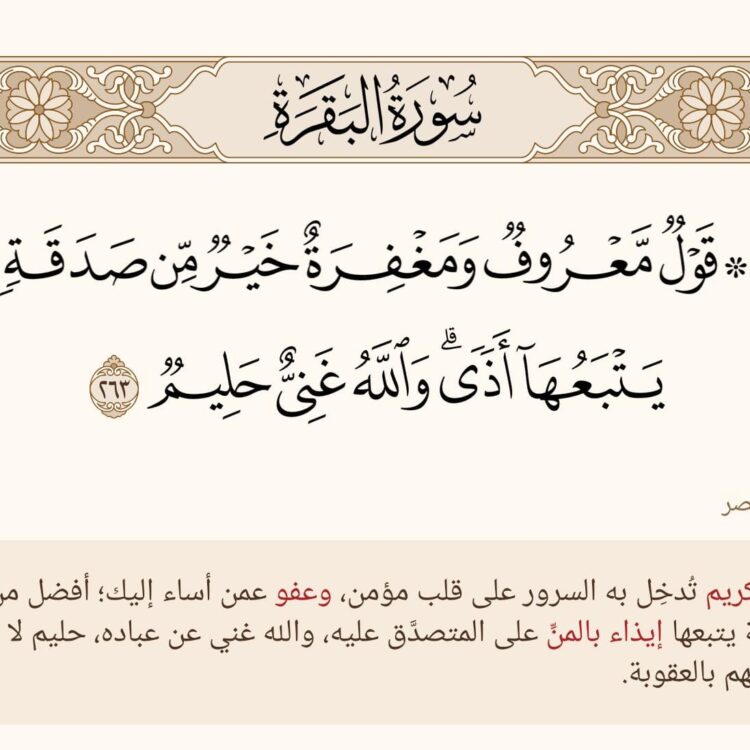 سُورَةُ البَقَرَةِ
* قَوۡلٞ مَّعۡرُوفٞ وَمَغۡفِرَةٌ خَيۡرٞ مِّن صَدَقَةٖ
يَتۡبَعُهَآ أَذٗىۗ وَٱللَّهُ غَنِيٌّ حَلِيمٞ ٢٦٣
تُدخِل به السرور على قلب مؤمن، وعفو عمن أساء إليك؛ أفضل
يتبعها إيذاء بالمنِّ على المتصدَّق عليه، والله غني عن عباده، حليم لا
بالعقوبة.